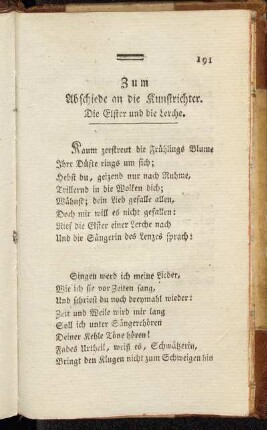 191
Zum
Abschiede an die Kunstrichter.
Die Elster und die Lerche.
Kaum zerstreut die Frühlings Blume
Ihre Düfte rings um sich;
Hebst du, geizend nur nach Ruhme,
Trillernd in die Wolken dich;
Wähnst; dein Lied gefalle allen,
Doch mir will es nicht gefallen:
Rief die Elster einer Lerche nach
Und die Sängerin des Lenzes sprach:
Singen werd ich meine Lieder,
Wie ich sie vor Zeiten sang,
Und schriest du noch dreymahl wieder:
Zeit und Weile wird mir lang
Soll ich unter Sängerchören
Deiner Kehle Töne hören!
Fades Urtheil, weiß es, Schwätzerin,
Bringt den Klugen nicht zum Schweigen hin